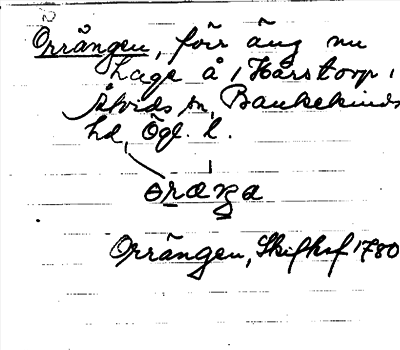 Orrängen, förr äng nu
hage å 1 Hårstorp 1
Åtvids sn, Bankekinds
hd, Ögl. l.
oræŋa
Orrängen, Skifksf 1780